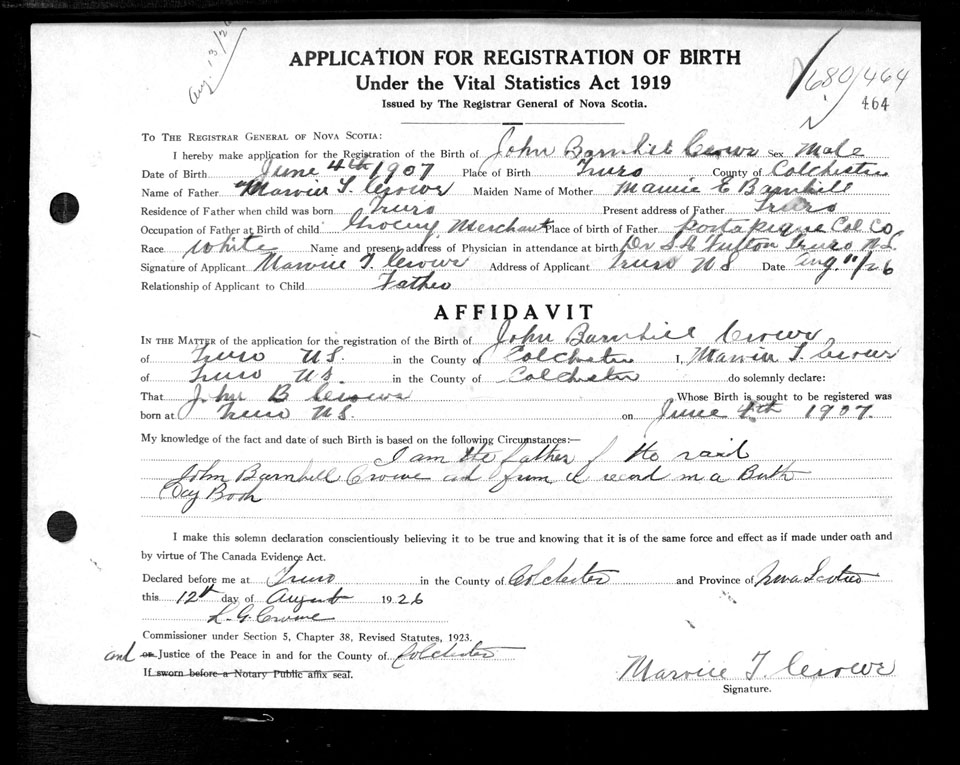 Aug. 13/26
APPLICATION FOR REGISTRATION OF BIRTH
Under the Vital Statistics Act 1919
Issued by The Registrar General of Nova Scotia.
680/464
464
TO THE REGISTRAR GENERAL OF NOVA SCOTIA:
I hereby make application for the Registration of the Birth of John Barnhill Crowe Sex Male
Date of Birth June 4th 1907 Place of Birth Truro County of Colchester
Name of Father T. Crowe Maiden Name of Mother Mamie E Barnhill
Residence of Father when child was born Truro Present address of Father Truro
Occupation of Father at Birth of child Grocery Merchant Place of birth of Father Portapique Col Co
Race White Name and present address of Physician in attendance at birth Dr Truro N.S.
Signature of Applicant T. Crowe Address of Applicant Truro NS Date Aug 11/26
Relationship of Applicant to Child Father
AFFIDAVIT
IN THE MATTER of the application for the registration of the Birth of John Barnhill Crowe
of Truro NS. in the County of Colchester I, T. Crowe
of Truro NS. in the County of Colchester do solemnly declare:
That John B Crowe Whose Birth is sought to be registered was
born at Truro NS. on June 4th 1907.
My knowledge of the fact and date of such Birth is based on the following Circumstances:—
I am the father of the said
John Barnhill Crowe and from a record in a Birth
Day Book
I make this solemn declaration conscientiously believing it to be true and knowing that it is of the same force and effect as if made under oath and
by virtue of The Canada Evidence Act.
Declared before me at Truro in the County of Colchester and Province of Nova Scotia
this 12th day of August 1926
L. G. Crowe
Commissioner under Section 5, Chapter 38, Revised Statutes, 1923.
and or Justice of the Peace in and for the County of Colchester
If sworn before a Notary Public affix seal.
T. Crowe
Signature.